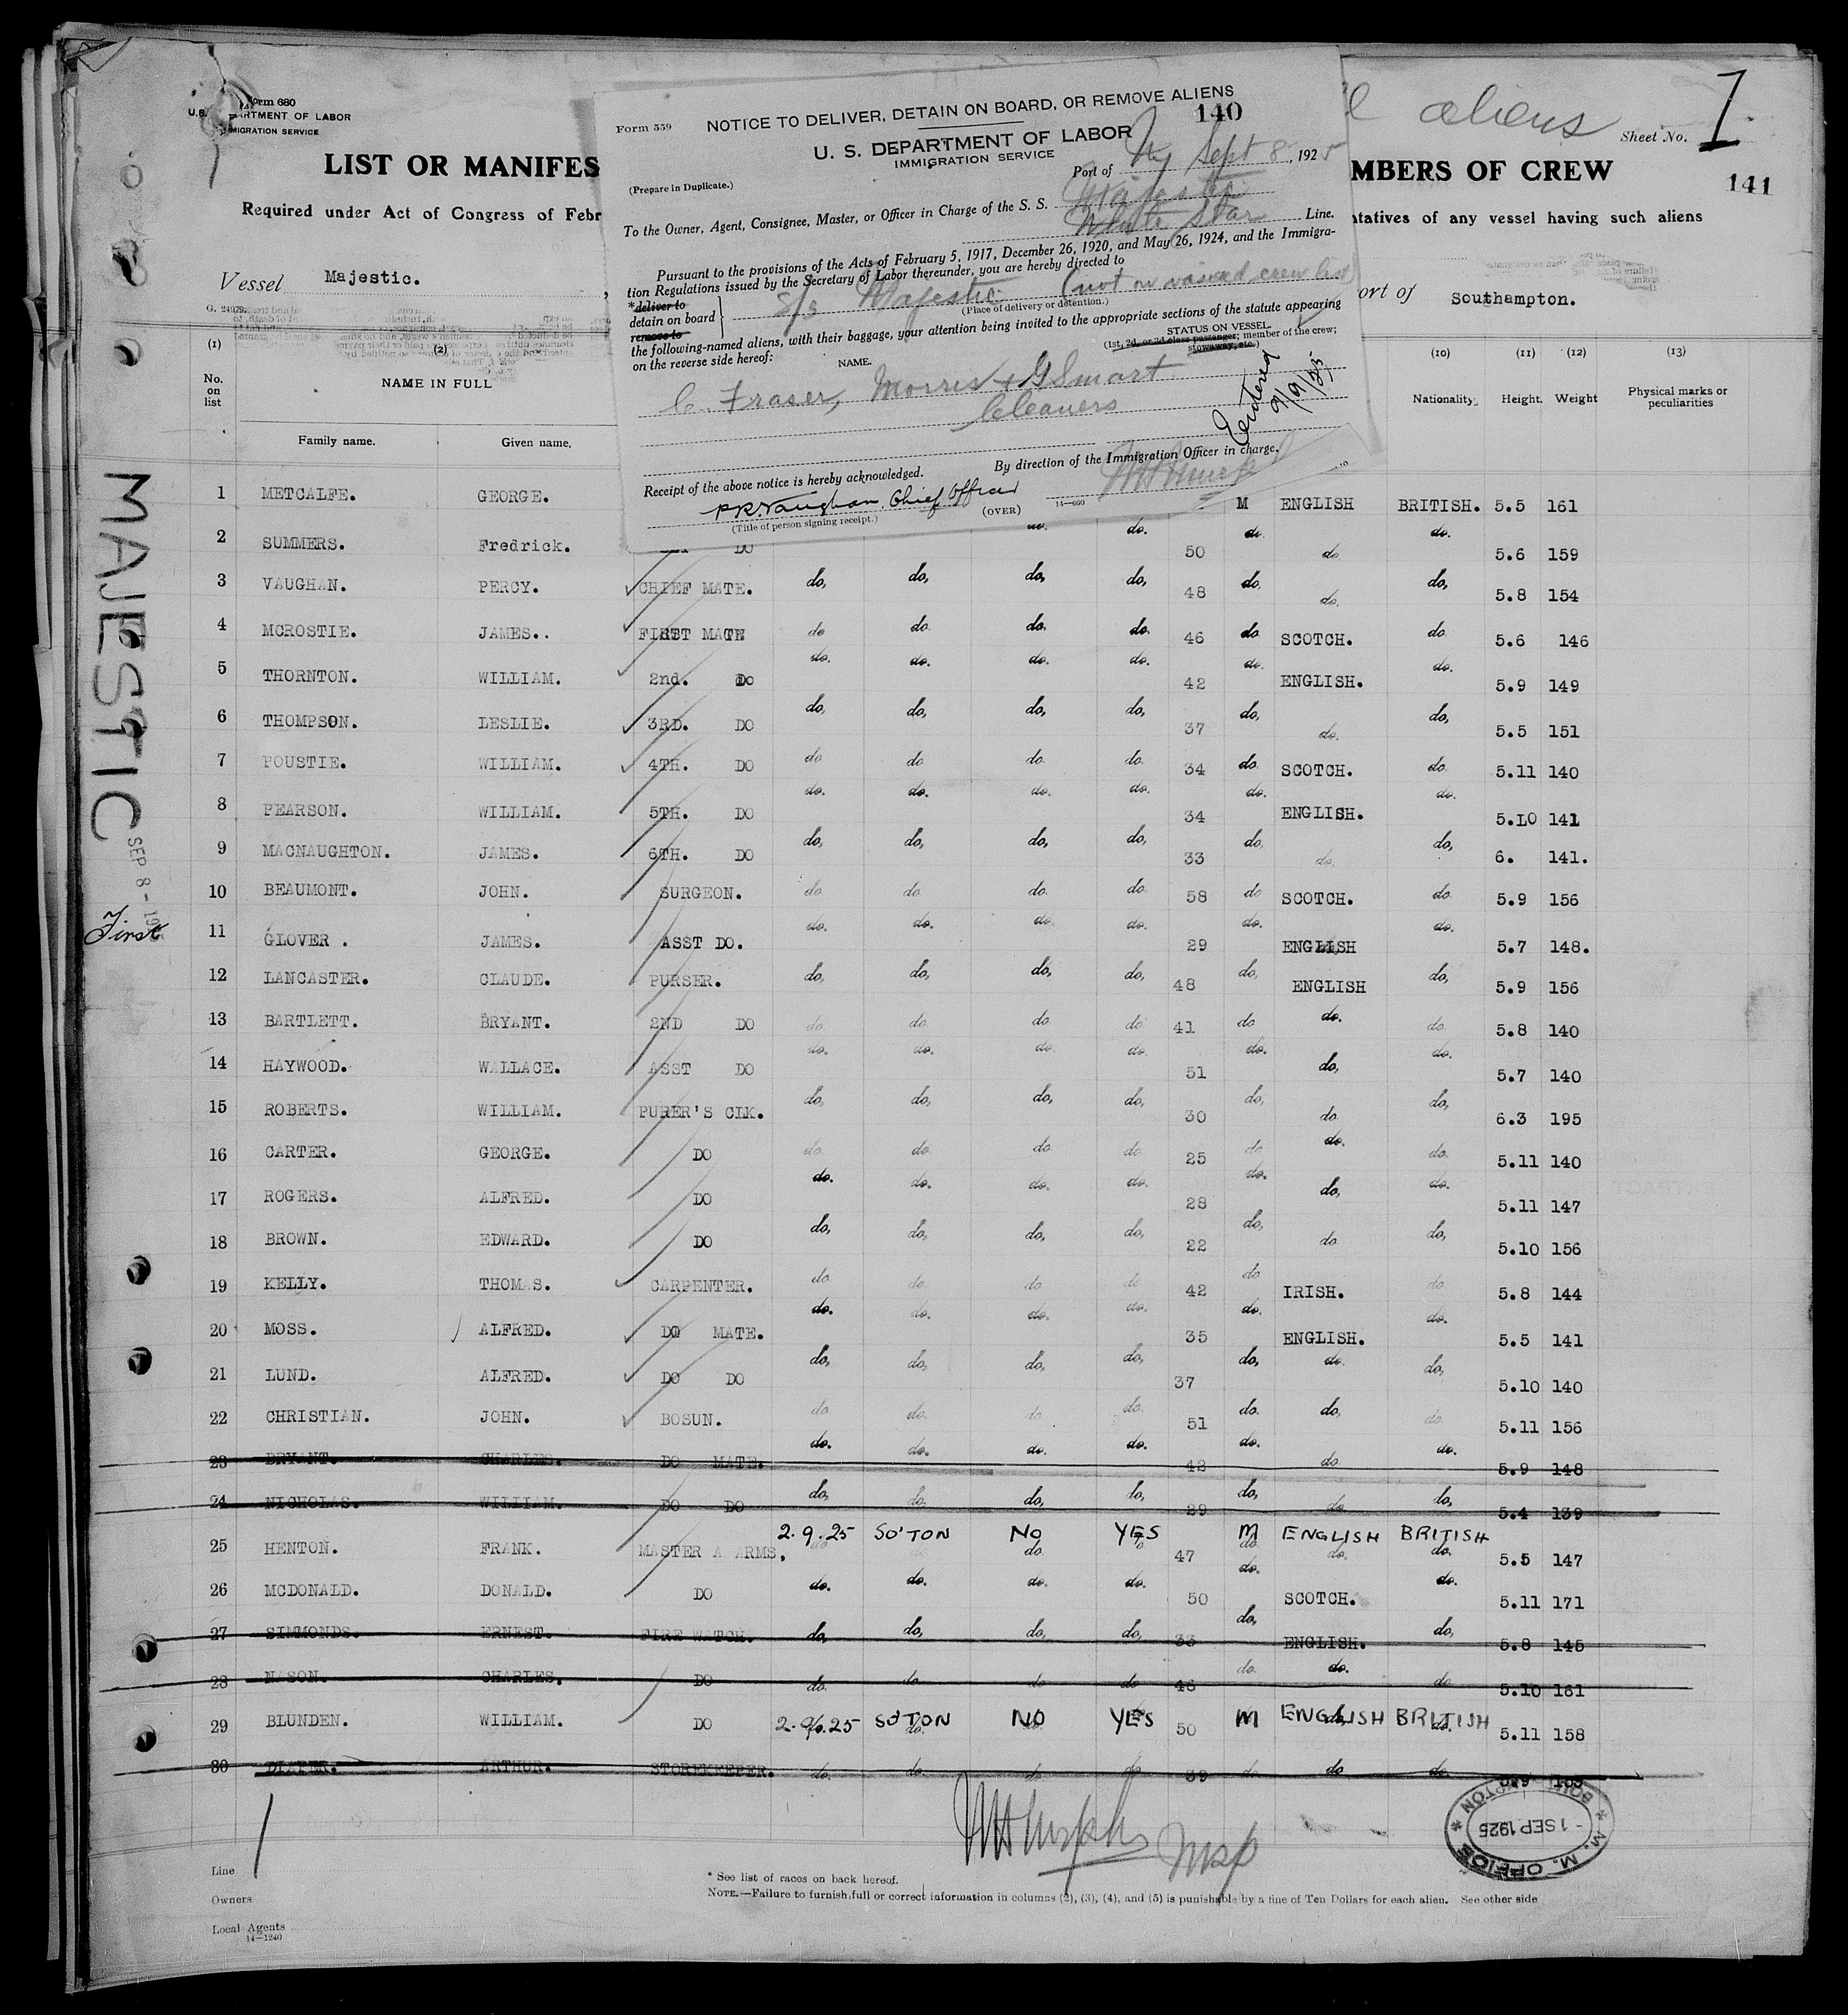 Form 680
U.S. DEPARTMENT OF LABOR
IMMIGRATION SERVICE
LIST OR MANIFES
Required under Act of Congress of Febr
Vessel Majestic.
140
Form 559 NOTICE TO DELIVER, DETAIN ON BOARD, OR REMOVE ALIENS
U. S. DEPARTMENT OF LABOR
IMMIGRATION SERVICE
(Prepare in Duplicate.)
Port of Ny Sept 8, 1925
To the Owner, Agent, Consignee, Master, or Officer in Charge of the S. S. Majestic
White Star Line.
Pursuant to the provisions of the Acts of February 5, 1917, December 26, 1920, and May 26, 1924, and the Immigra-
tion Regulations issued by the Secretary of Labor thereunder, you are hereby directed to
*deliver to
detain on board
remove to
S/S Majestic (not on visaed crew list)
(Place of delivery or detention.)
the following-named aliens, with their baggage, your attention being invited to the appropriate sections of the statute appearing
on the reverse side hereof:
NAME.
STATUS ON VESSEL
(1st, 2d, or 3d class passenger; member of the crew;
stowaway, etc.)
C. Fraser, Morris + G Smart
Cleaners
Entered 9/9/25
By direction of the Immigration Officer in charge.
Receipt of the above notice is hereby acknowledged.
P.R. Vaughan, Chief Officer
(Title of person signing receipt.)
(OVER)
14—660
aliens
Sheet No. 1
MBERS OF CREW
141
ntatives of any vessel having such aliens
ort of Southampton.
(1) (2) (10) (11) (12) (13)
No. on list NAME IN FULL Nationality. Height. Weight Physical marks or peculiarities
Family name. Given name.
MAJESTIC
SEP 8 - 19
First
1 METCALFE. GEORGE. M ENGLISH BRITISH. 5.5 161
2 SUMMERS. Fredrick. DO do. do. 50 do. do. do. 5.6 159
3 VAUGHAN. PERCY. CHIEF MATE. do, do, do, do, 48 do. do. do, 5.8 154
4 MCROSTIE. JAMES.. FIRST MATE do do. do. do. 46 do SCOTCH. do 5.6 146
5 THORNTON. WILLIAM. 2nd. DO do. do. do. do. 42 do. ENGLISH. do. 5.9 149
6 THOMPSON. LESLIE. 3RD. DO do, do, do, do, 37 do, do. do, 5.5 151
7 POUSTIE. WILLIAM. 4TH. DO do do do. do. 34 do. SCOTCH. do 5.11 140
8 PEARSON. WILLIAM. 5TH. DO do. do. do. do. 34 do. ENGLISH. do. 5.10 141
9 MACNAUGHTON. JAMES. 6TH. DO do, do, do, do, 33 do, do. do, 6. 141.
10 BEAUMONT. JOHN. SURGEON. do do. do. do. 58 do SCOTCH. do. 5.9 156
11 GLOVER . JAMES. ASST DO. do. do. do. do. 29 do. ENGLISH do. 5.7 148.
12 LANCASTER. CLAUDE. PURSER. do, do, do, do, 48 do, ENGLISH do, 5.9 156
13 BARTLETT. BRYANT. 2ND DO do. do do do 41 do do. do. 5.8 140
14 HAYWOOD. WALLACE. ASST DO do. do. do. do. 51 do. do, do. 5.7 140
15 ROBERTS. WILLIAM. PURER'S CLK. do, do, do, do, 30 do, do. do, 6.3 195
16 CARTER. GEORGE. DO do. do. do do 25 do do. do. 5.11 140
17 ROGERS. ALFRED. DO do. do. do. do. 28 do. do, do. 5.11 147
18 BROWN. EDWARD. DO do, do, do, do, 22 do, do. do, 5.10 156
19 KELLY. THOMAS. CARPENTER. do. do. do do 42 do IRISH. do 5.8 144
20 MOSS. ALFRED. DO MATE. do. do. do. do. 35 do. ENGLISH. do. 5.5 141
21 LUND. ALFRED. DO DO do, do, do, do, 37 do, do. do, 5.10 140
22 CHRISTIAN. JOHN. BOSUN. do do. do do. 51 do. do, do. 5.11 156
23 BRYANT. CHARLES. DO MATE. do. do. do. do. 42 do. do do. 5.9 148
24 NICHOLAS. WILLIAM. DO DO do, do. do, do, 29 do, do do, 5.4 139
25 HENTON. FRANK. MASTER A ARMS. 2.9.25 SO'TON NO YES 47 M ENGLISH BRITISH 5.5 147
26 MCDONALD. DONALD. DO do. do. do. do. 50 do. SCOTCH. do. 5.11 171
27 SIMMONDS. ERNEST. FIRE WATCH. do, do, do, do, 33 do, ENGLISH. do, 5.8 145
28 NASON. CHARLES. DO do. do. do do 46 do. do. do 5.10 161
29 BLUNDEN. WILLIAM. DO 2.9.25 SO'TON NO YES 50 M ENGLISH BRITISH 5.11 158
30 DIAPER. ARTHUR. STOREKEEPER. do. do. do do 39 do do do.
M. M. OFFICE
- 1 SEP 1925
SOUTHAMPTON
Line
Owners
Local Agents
14—1240
* See list of races on back hereof.
NOTE.—Failure to furnish full or correct information in columns (2), (3), (4), and (5) is punishable by a fine of Ten Dollars for each alien. See other side